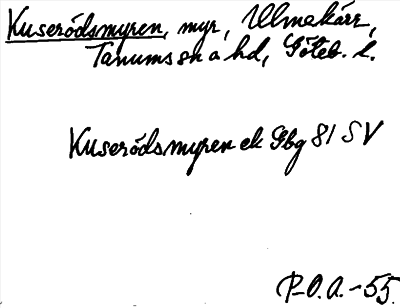 Kuserödsmyren, myr, Ulmekärr,
Tanums sn o hd, Göteb. l.
Kuserödsmyren ek Gbg 81 SV
P-O.A.-55.